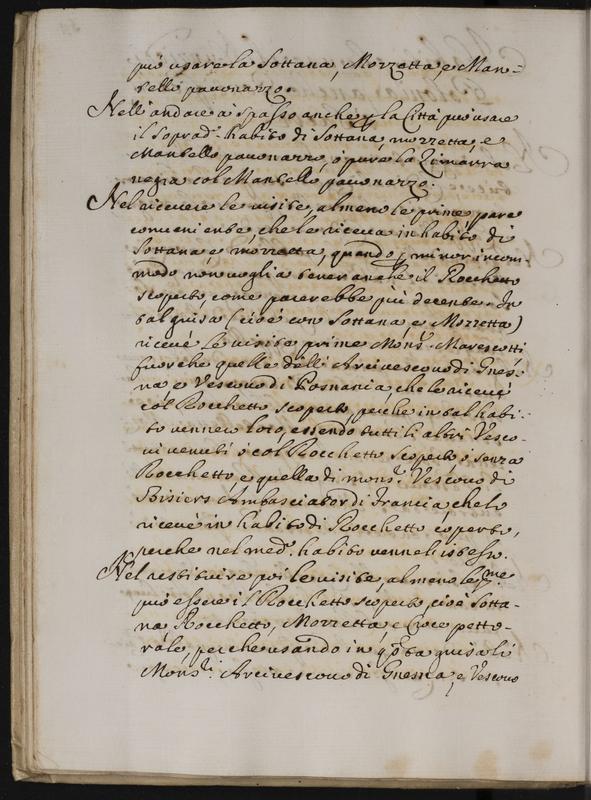 può usare la Sottana, Mozzetta, e Man=
tello pavonazzo.
Nell'andare à spasso anche p la Città può usare
il soprad.º habito di Sottana, mozzetta, e
Mantello pavonazzo, ò pure la Zimarra
negra col Mantello pavonazzo.
Nel ricevere le visite, almeno le prime, pare
conveniente, che le riceva in habito di
Sottana e mozzetta, quando p minor incom
modo non voglia tener anche il Rocchetto
scoperto, come parerebbe più decente. In
tal guisa (cioè con Sottana, e Mozzetta)
ricevé le visite prime Mons.r Marescotti
fuorche quelle dell'Arcivescovo di Gnes=
na e Vescovo di Posnania, che le ricevè
col Rocchetto scoperto, perche in tal habi=
to vennero loro, essendo tutti li altri Vesco=
vi venuti ò col Rocchetto scoperto ò senza
Rocchetto e quella di mons.r Vescovo di
Bisiers Ambasciator di Francia, che lo
ricevè in habito di Rocchetto coperto,
perche nel med.º habito venneli istesso.
Nel restituire poi le visite, almeno le p.me
può essere il Rocchetto scoperto, cioè Sotta=
na Rocchetto, Mozzetta e Croce petto=
rale, perche usando in q.ta guisa li
Mons.ri Arcivescovo di Gnesna, e Vescovo